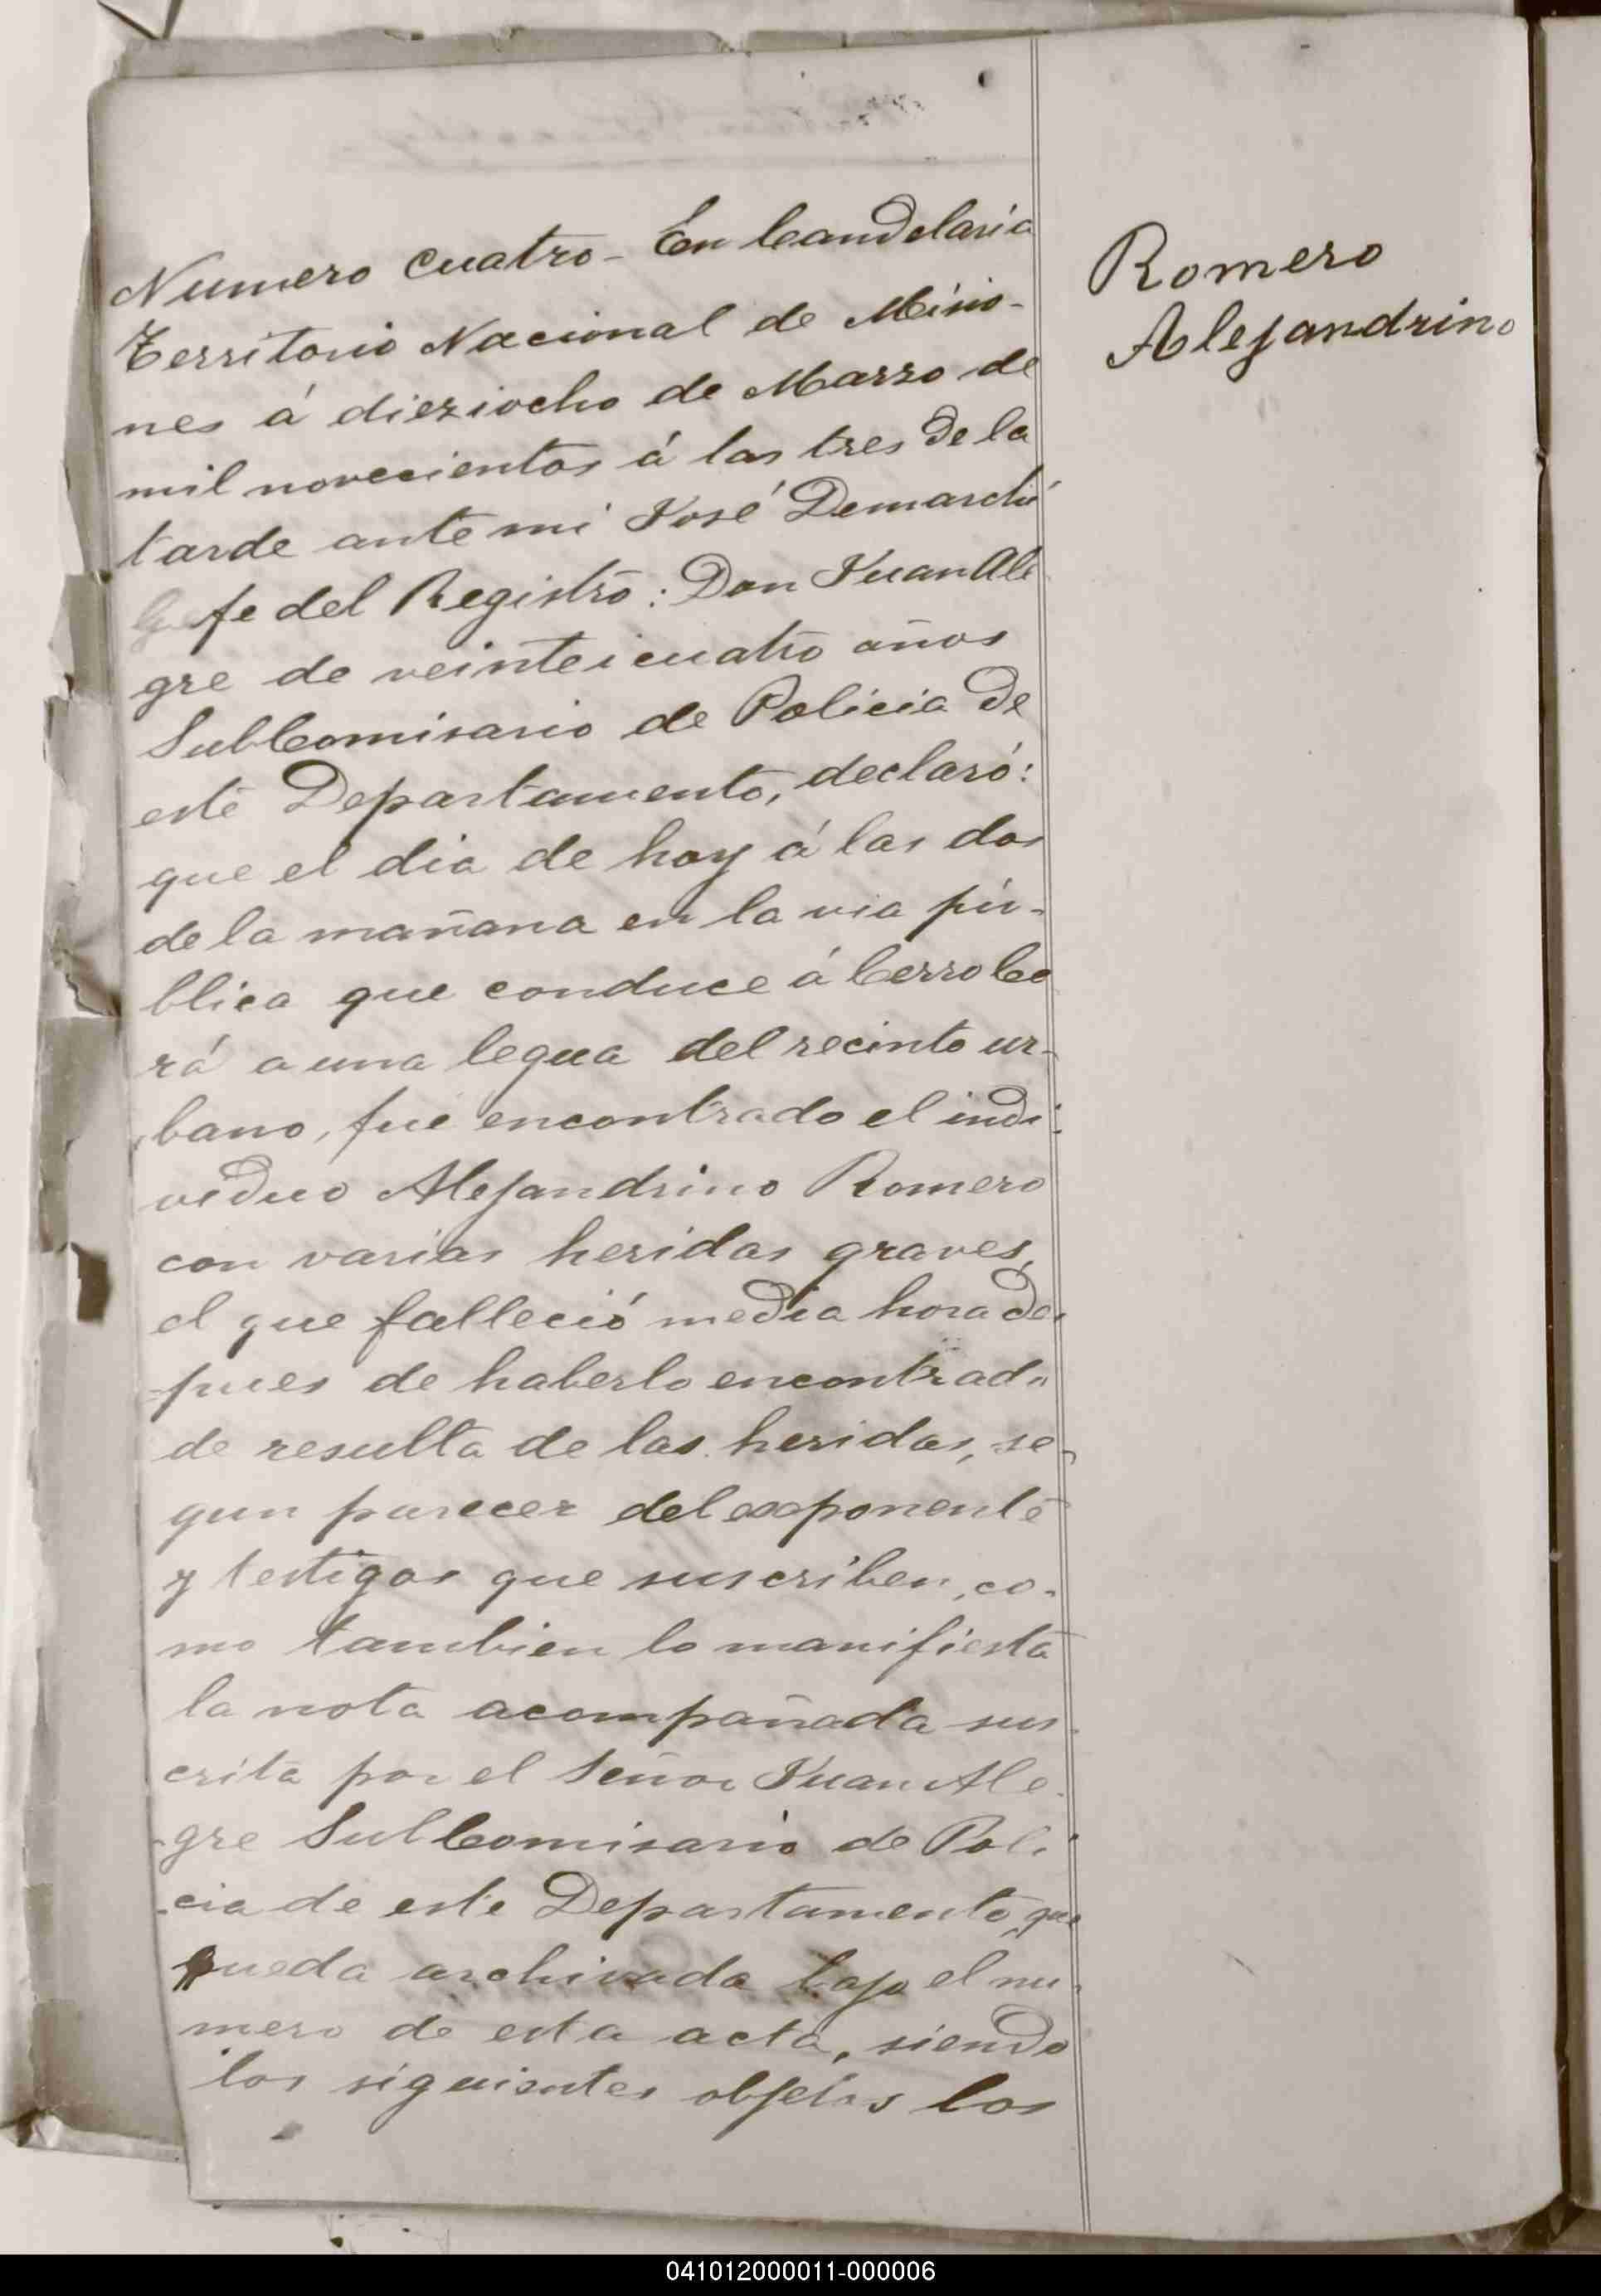 Numero cuatro - En Candelaria
Territorio Nacional de Misio-
nes á dieziocho de Marzo de
mil novecientos á las tres de la
tarde ante mi José Demarchi
Gefe del Registro: Don Juan Ale
gre de veinteicuatro años
SubComisario de Policia de
este Departamento, declaró:
que el dia de hoy á las dos
de la mañana en la via pú-
blica que conduce á Cerro Co
rá a una legua del recinto ur-
bano, fue encontrado el indi-
viduo Alejandrino Romero
con varias heridas graves,
el que falleció media hora des
pues de haberlo encontrado
de resulta de las heridas, se-
gun parecer del exponente
y testigos que suscriben, co-
mo tambien lo manifiesta
la nota acompañada sus-
crita por el Señor Juan Ale-
gre SubComisario de Poli
cia de este Departamento que
queda archivada bajo el nu-
mero de esta acta, siendo
los siguientes objetos los
Romero
Alejandrino
041012000011-000006